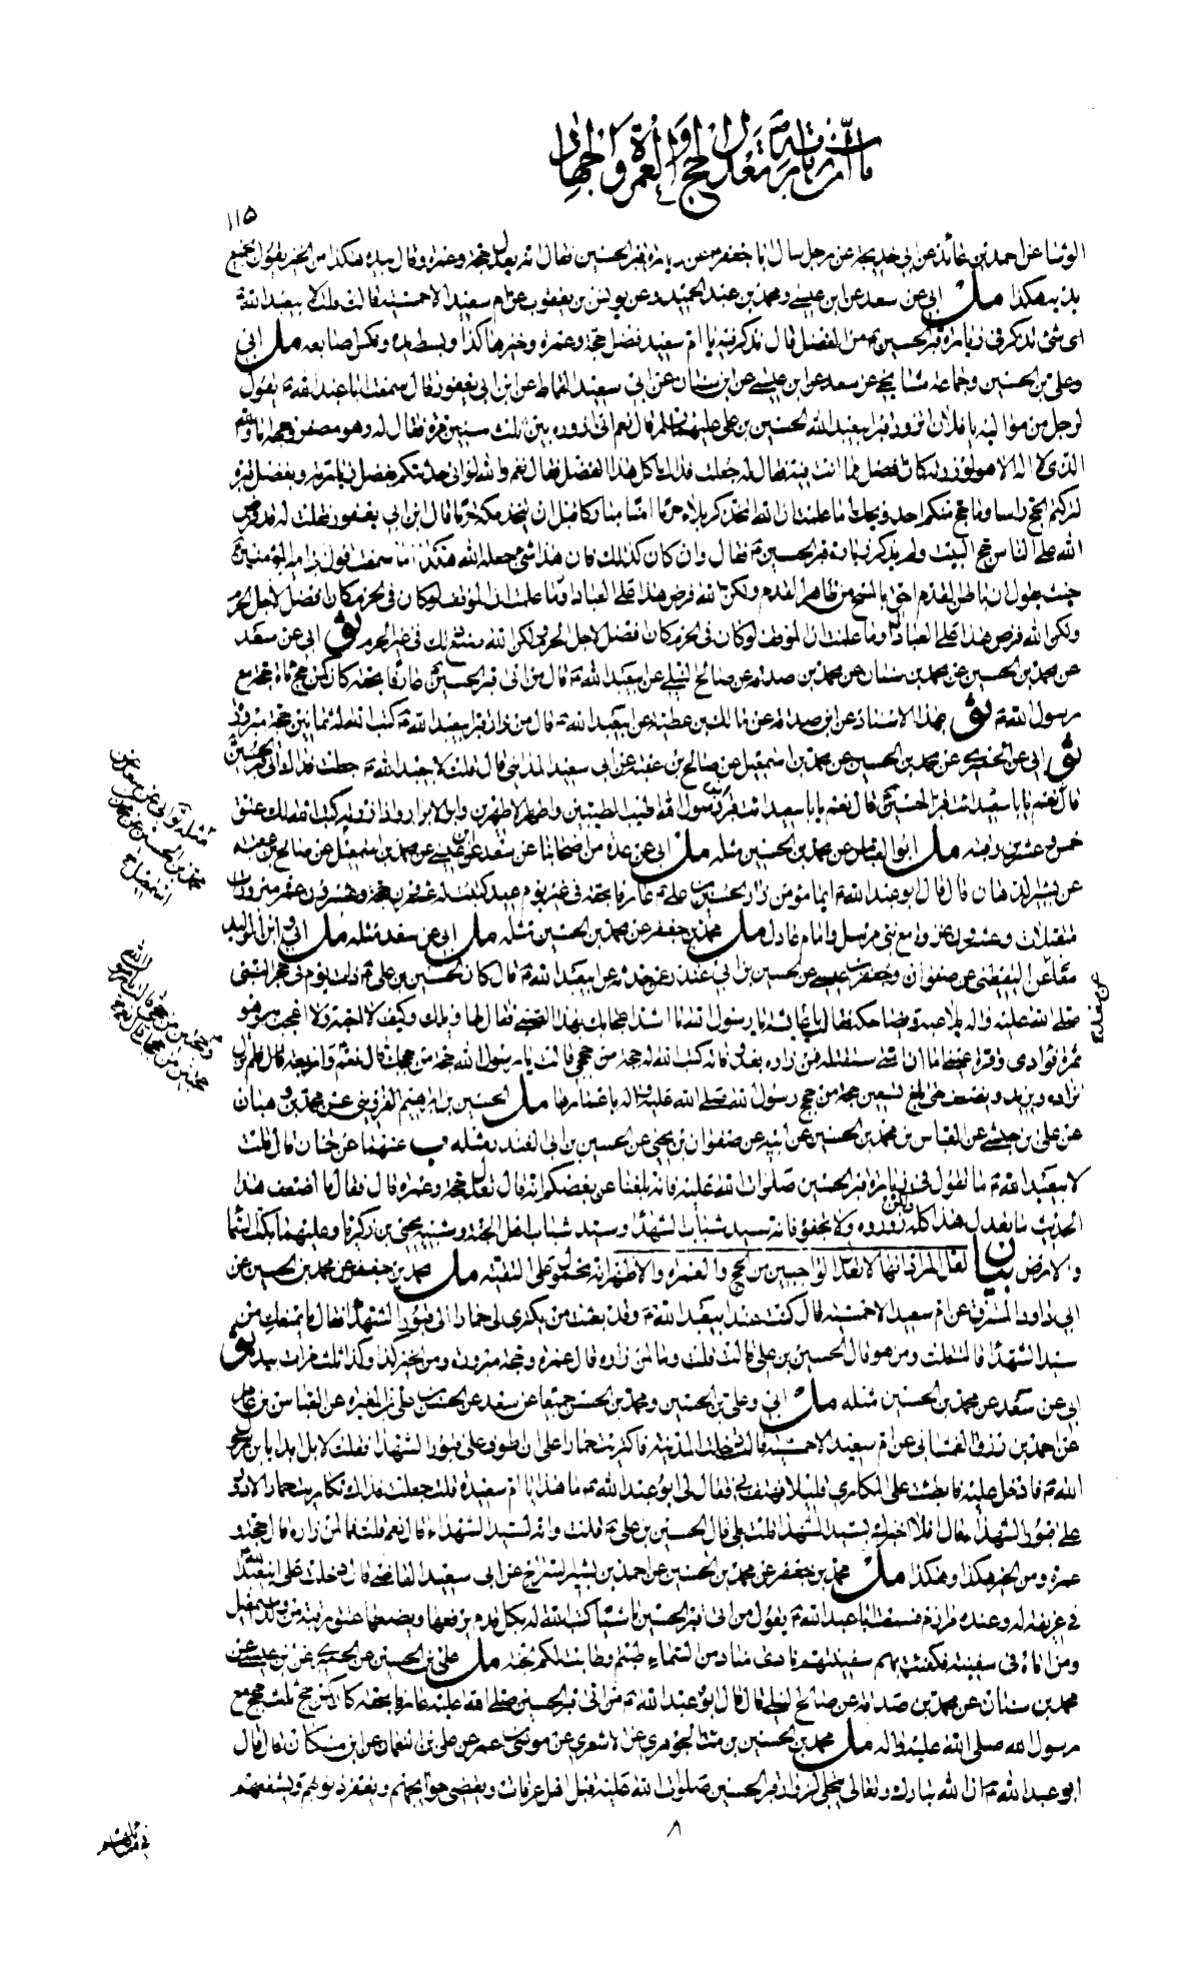 باب ان زيارته ع تعدل الحج و العمرة و الجهاد
١١٥
الوشا عن احمد بن عائذ عن ابي خديجة عن رجل سال ابا جعفر ع عن زيارة قبر الحسين فقال انه يعدل حجة وعمرة وقال بيده هكذا من الخير يقول بجميع
بديه هكذا مل ابي عن سعد عن ابن عيسى ومحمد بن عبد الحميد عن يونس بن يعقوب عن ام سعيد الاحمسية قالت قلت لابيعبد الله ع
اي شئ تذكر في زيارة قبر الحسين ع من الفضل قال نذكر فيه يا ام سعيد فضل حجة وعمرة وخيرها كذا وبسط يده ونكس اصابعه مل ابي
وعلي بن الحسين وجماعة مشايخي عن سعد عن ابن عيسى عن ابن سنان عن ابي سعيد القماط عن ابن ابي يعفور قال سمعت ابا عبد الله ع يقول
لرجل من مواليه يا فلان اتزور قبر ابيعبد الله الحسين بن علي عليهما السلم قال نعم اني ازوره بين ثلث سنين مرة فقال له وهو مصفر وجهه اما والله
الذي لا اله الا هو لو زرته كان افضل مما انت فيه فقال له جعلت فداك اكل هذا الفضل فقال نعم والله لو اني حدثتكم بفضل زيارته وبفضل قبره
لتركتم الحج راسا وما حج منكم احد ويحك اما علمت ان الله اتخذ كربلاء حرما امنا مباركا قبل ان يتخذ مكة حرما قال ابن ابي يعفور فقلت له قد فرض
الله على الناس حج البيت ولم يذكر زيارة قبر الحسين ع فقال وان كان كذلك فان هذا شئ جعله الله هكذا اما سمعت قول امير المؤمنين ع
حيث يقول ان باطن القدم احق بالمسح من ظاهر القدم ولكن الله فرض هذا على العباد وما علمت ان الموقف لو كان في الحرم كان افضل لاجل الحرم
ولكن الله فرض هذا على العباد وما علمت ان الموقف لو كان في الحرم كان افضل لاجل الحرم ولكن الله صنع ذلك في غير الحرم ثو ابي عن سعد
عن محمد بن الحسين عن محمد بن سنان عن محمد بن صدقة عن صالح النيلي عن ابيعبد الله ع قال من اتى قبر الحسين ع عارفا بحقه كان كمن حج مائة حجة مع
رسول الله ص ثو بهذا الاسناد عن ابن صدقة عن مالك بن عطية عن ابيعبد الله ع قال من زار قبر ابيعبد الله ع كتب الله له ثمانين حجة مبرورة
ثو ابي عن الحميري عن محمد بن الحسين عن محمد بن اسمعيل عن صالح بن عقبة عن ابي سعيد المدايني قال قلت لابيعبد الله ع جعلت فداك اتي قبر الحسين ع
قال نعم يا با سعيد ائت قبر ابن رسول الله اطيب الطيبين واطهر الاطهرين وابر الابرار واذا زرته كتب الله لك عتق
خمس وعشرين رقبة مل ابو العباس عن محمد بن الحسين مثله مل ابي عن عدة من اصحابنا عن سعد عن ابن عيسى عن محمد بن اسمعيل عن صالح بن عقبة
عن بشير الدهان قال قال ابو عبد الله ع ايما مؤمن زار الحسين بن علي ع عارفا بحقه في غير يوم عيد كتبت له عشرون حجة وعشرون عمرة مبرورات
متقبلات وعشرون غزوة مع نبي مرسل وامام عادل مل محمد بن جعفر عن محمد بن الحسين مثله مل ابي عن سعد مثله مل ابي وابن الوليد
معا عن اليقطيني عن صفوان وجعفر بن عيسى عن الحسين بن ابي غندر عمن حدثه عن ابيعبد الله ع قال كان الحسين بن علي ع ذات يوم في حجر النبي
صلى الله عليه واله يلاعبه ويضاحكه فقالت عائشة يا رسول الله ما اشد اعجابك بهذا الصبي فقال لها ويلك وكيف لا احبه ولا اعجب به وهو
ثمرة فؤادي وقرة عيني اما ان امتي ستقتله فمن زاره بعد وفاته كتب الله له حجة من حججي قالت يا رسول الله حجة من حججك قال نعم وحجتين قال فلم تزل
تزاده ويزيد ويضعف حتى بلغ تسعين حجة من حجج رسول الله صلى الله عليه واله باعمارها مل الحسين بن ابراهيم القزويني عن محمد بن وهبان
عن علي بن حبشي عن العباس بن محمد بن الحسين عن ابيه عن صفوان بن يحيى عن الحسين بن ابي الغندر مثله ب عنهما عن حنان قال قلت
لابيعبد الله ع ما تقول في زيارة قبر الحسين صلوات الله عليه فانه بلغنا عن بعضكم انه قال تعدل حجة وعمرة قال فقال ما اضعف هذا
الحديث ما تعدل هذا كله ولكن زوروه ولا تجفوه فانه سيد شباب الشهداء وسيد شباب اهل الجنة وشبيه يحيى بن زكريا وعليهما بكت السماء
والارض بيان لعل المراد انها لا تعدل الواجبين من الحج والعمرة والاظهر انه محمول على التقية مل محمد بن جعفر عن محمد بن الحسين عن
ابي داود المسترق عن ام سعيد الاحمسية قال كنت عند ابيعبد الله ع وقد بعثت من يكتري لي حمارا الى قبور الشهداء فقال ما يمنعك من
سيد الشهداء قالت قلت ومن هو قال الحسين بن علي قالت قلت وما لمن زاره قال عمرة وحجة مبرورة ومن الخير كذا وكذا ثلث مرات بيده ثو
ابي عن سعد عن محمد بن الحسين مثله مل ابي وعلي بن الحسين ومحمد بن الحسن جميعا عن سعد عن الحسن بن علي بن المغيرة عن العباس بن عامر
عن احمد بن رزق الغمشاني عن ام سعيد الاحمسية قالت دخلت المدينة فاكتريت حمارا على ان اطوف على قبور الشهداء فقلت لا بل ابدا بابن رسول
الله ص فادخل عليه فابطئت على المكاري قليلا فهتف بي فقال لي ابو عبد الله ع ما هذا يا ام سعيد قلت جعلت فداك تكاريت حمارا لادور
على قبور الشهداء فقال افلا اخبرك بسيد الشهداء قلت بلى قال الحسين بن علي ع قلت وانه لسيد الشهداء قال نعم قلت فما لمن زاره قال حجة و
عمرة ومن الخير هكذا وهكذا مل محمد بن جعفر عن محمد بن الحسين عن احمد بن بشير السراج عن ابي سعيد القاضي قال دخلت على ابيعبد الله ع
في غريفة له وعنده مرازم فسمعت ابا عبد الله ع يقول من اتى قبر الحسين ماشيا كتب الله له بكل قدم يرفعها ويضعها عتق رقبة من ولد اسمعيل
ومن اتاه في سفينة فكفئت بهم سفينتهم نادى مناد من السماء طبتم وطابت لكم الجنة مل علي بن الحسين عن الحميري عن ابن عيسى عن
محمد بن سنان عن محمد بن صدقة عن صالح النيلي قال قال ابو عبد الله ع من اتى قبر الحسين صلى الله عليه عارفا بحقه كان كمن حج ثلث حجج مع
رسول الله صلى الله عليه واله مل محمد بن الحسين بن مت الجوهري عن الاشعري عن موسى بن عمر عن علي بن النعمان عن ابن مسكان قال قال
ابو عبد الله ع ان الله تبارك وتعالى يتجلى لزوار قبر الحسين صلوات الله عليه قبل اهل عرفات ويقضي حوائجهم ويغفر ذنوبهم ويشفعهم
٨